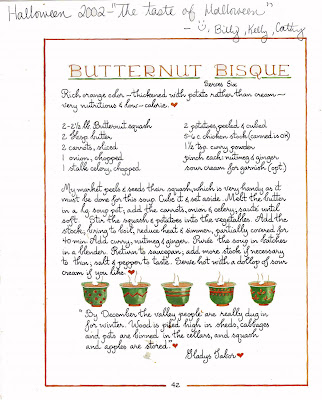 Halloween 2002 - "The taste of Halloween"
- Billy, Kelly, Cathy
BUTTERNUT BISQUE
Serves Six
Rich orange color - thickened with potato rather than cream -
very nutritious & low-calorie. ♥
2-2½ lb. Butternut squash
2 Tbsp butter
2 carrots, sliced
1 onion, chopped
1 stalk celery, chopped
2 potatoes, peeled & cubed
5-6 c. chicken stock (canned is OK)
1½ tsp. curry powder
pinch each: nutmeg & ginger
sour cream for garnish (opt.)
My market peels & seeds their squash, which is very handy as it
must be done for this soup. Cube it & set aside. Melt the butter
in a lg. soup pot; add the carrots, onion & celery; sauté until
soft. Stir the squash & potatoes into the vegetables. Add the
stock; bring to boil, reduce heat & simmer, partially covered for
40 min. Add curry, nutmeg & ginger. Purée the soup in batches
in a blender. Return to saucepan; add more stock if necessary
to thin; salt & pepper to taste. Serve hot with a dollop of sour
cream if you like. ♥
"By December the valley people are really dug in
for winter. Wood is piled high in sheds, cabbages
and pots are binned in the cellars, and squash
and apples are stored."
Gladys Tabor
42